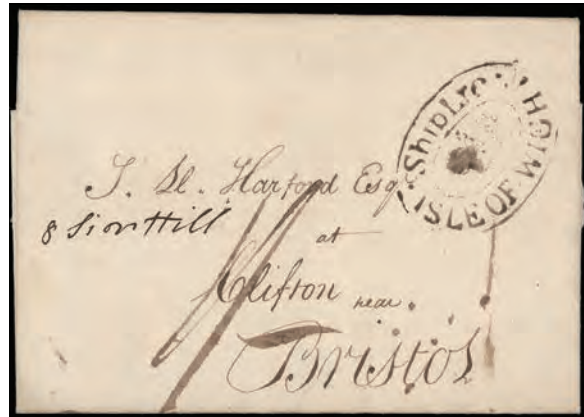 Ship Lre
ISLE OF WIGHT
J. Harford Esq
8 Sion Hill
at
Clifton near
Bristol